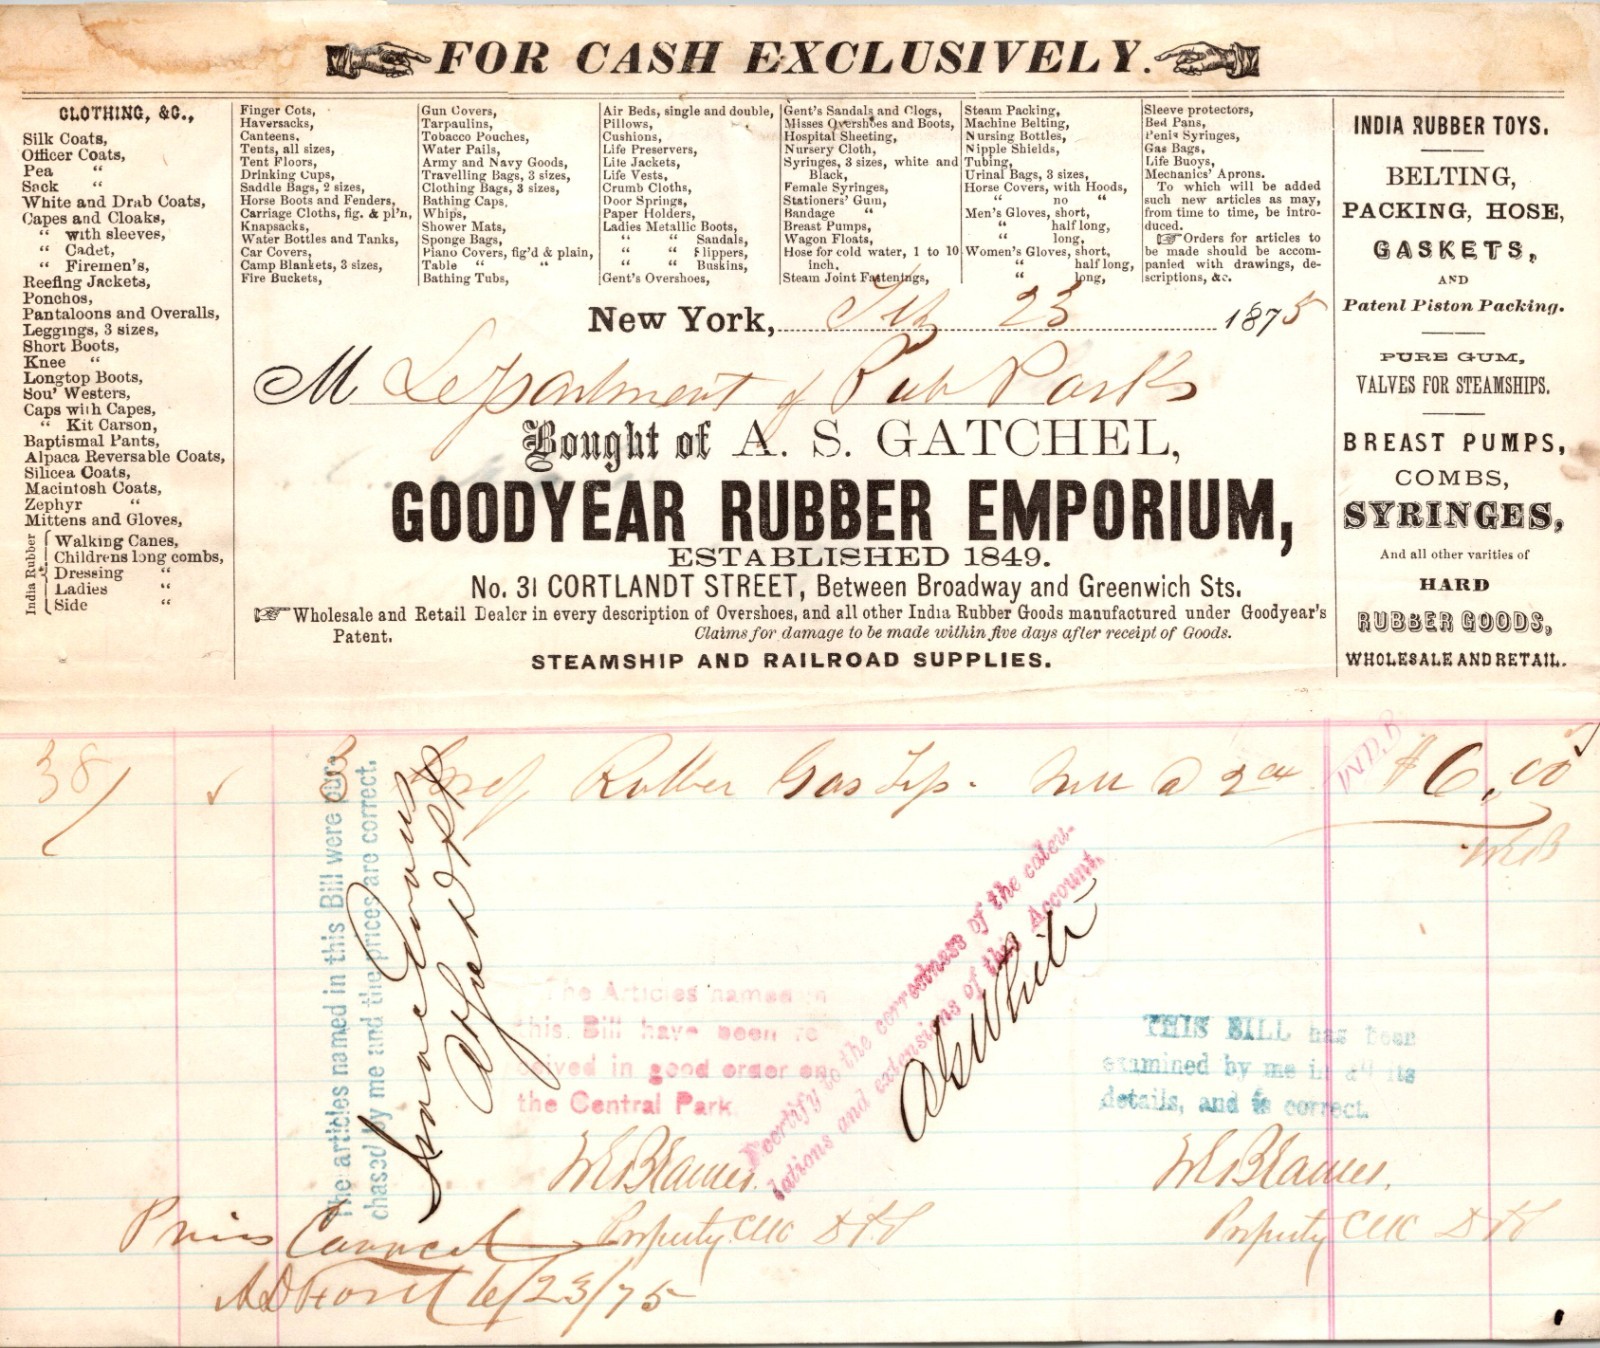 FOR CASH EXCLUSIVELY.
CLOTHING, &C.,
Silk Coats,
Officer Coats,
Pea “
Sack “
White and Drab Coats,
Capes and Cloaks,
“ with sleeves,
“ Cadet,
“ Firemen's,
Reefing Jackets,
Ponchos,
Pantaloons and Overalls,
Leggings, 3 sizes,
Short Boots,
Knee “
Longtop Boots,
Sou' Westers,
Caps with Capes,
“ Kit Carson,
Baptismal Pants,
Alpaca Reversable Coats,
Silicea Coats,
Macintosh Coats,
Zephyr “
Mittens and Gloves,
India Rubber
Walking Canes,
Childrens long combs,
Dressing “
Ladies “
Side “
Finger Cots,
Haversacks,
Canteens,
Tents, all sizes,
Tent Floors,
Drinking Cups,
Saddle Bags, 2 sizes,
Horse Boots and Fenders,
Carriage Cloths, fig. & pl'n,
Knapsacks,
Water Bottles and Tanks,
Car Covers,
Camp Blankets, 3 sizes,
Fire Buckets,
Gun Covers,
Tarpaulins,
Tobacco Pouches,
Water Pails,
Army and Navy Goods,
Travelling Bags, 3 sizes,
Clothing Bags, 3 sizes,
Bathing Caps,
Whips,
Shower Mats,
Sponge Bags,
Piano Covers, fig'd & plain,
Table “ “
Bathing Tubs,
Air Beds, single and double,
Pillows,
Cushions,
Life Preservers,
Life Jackets,
Life Vests,
Crumb Cloths,
Door Springs,
Paper Holders,
Ladies Metallic Boots,
“ “ Sandals,
“ “ Flippers,
“ “ Buskins,
Gent's Overshoes,
Gent's Sandals and Clogs,
Misses Overshoes and Boots,
Hospital Sheeting,
Nursery Cloth,
Syringes, 3 sizes, white and
Black,
Female Syringes,
Stationers' Gum,
Bandage “
Breast Pumps,
Wagon Floats,
Hose for cold water, 1 to 10
inch.
Steam Joint Fastenings,
Steam Packing,
Machine Belting,
Nursing Bottles,
Nipple Shields,
Tubing,
Urinal Bags, 3 sizes,
Horse Covers, with Hoods,
“ no “
Men's Gloves, short,
“ half long,
“ long,
Women's Gloves, short,
“ half long,
“ long,
Sleeve protectors,
Bed Pans,
Penis Syringes,
Gas Bags,
Life Buoys,
Mechanics' Aprons.
To which will be added
such new articles as may,
from time to time, be intro-
duced.
Orders for articles to
be made should be accom-
panied with drawings, de-
scriptions, &c.
INDIA RUBBER TOYS.
BELTING,
PACKING, HOSE,
GASKETS,
AND
Patent Piston Packing.
PURE GUM,
VALVES FOR STEAMSHIPS.
BREAST PUMPS,
COMBS,
SYRINGES,
And all other varities of
HARD
RUBBER GOODS,
WHOLESALE AND RETAIL.
New York, Feb 23 1875
M Department of Pub Parks
Bought of A. S. GATCHEL,
GOODYEAR RUBBER EMPORIUM,
ESTABLISHED 1849.
No. 31 CORTLANDT STREET, Between Broadway and Greenwich Sts.
Wholesale and Retail Dealer in every description of Overshoes, and all other India Rubber Goods manufactured under Goodyear's
Patent. Claims for damage to be made within five days after receipt of Goods.
STEAMSHIP AND RAILROAD SUPPLIES.
38/ 3 Rubber Gas $6.00
The articles named in this Bill were pur-
chased by me and the prices are correct.
The Articles named in
this Bill have been re
ceived in good order on
the Central Park.
I certify to the correctness of the calcu-
lations and extensions of this Account.
THIS BILL has been
examined by me in all its
details, and is correct.
Property Clk D P P
Property Clk D P P
Prices Correct
6/23/75